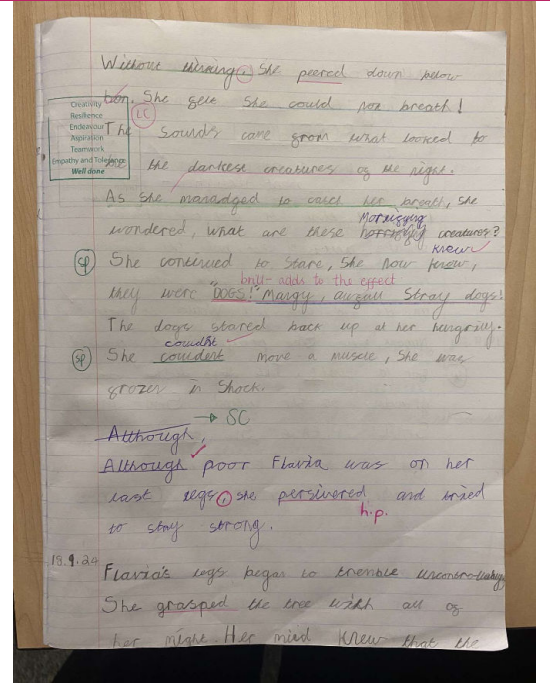 Without thinking, She peered down below
her. She felt She could not breath!
Creativity
Resilience
Endeavour
Aspiration
Teamwork
Empathy and Tolerance
Well done
LC
The Sounds came from what looked to
be the darkest creatures of the night.
As She managed to catch her breath, She
wondered, what are these horrifying creatures?
Morrifying
knew
sp
She continued to Stare, She now know,
brill- adds to the effect
they were "DOGS!" Mangy, Stray dogs!
The dogs stared back up at her hungrily.
couldnt
sp
She couldent move a muscle, She was
frozen in Shock.
→ SC
Although,
Although poor Flavia was on her
last legs, she persivered and tried
h.p.
to stay strong.
18.9.24
Flavia's legs began to tremble uncontrollably
She grasped the tree with all of
her might. Her mind knew that the